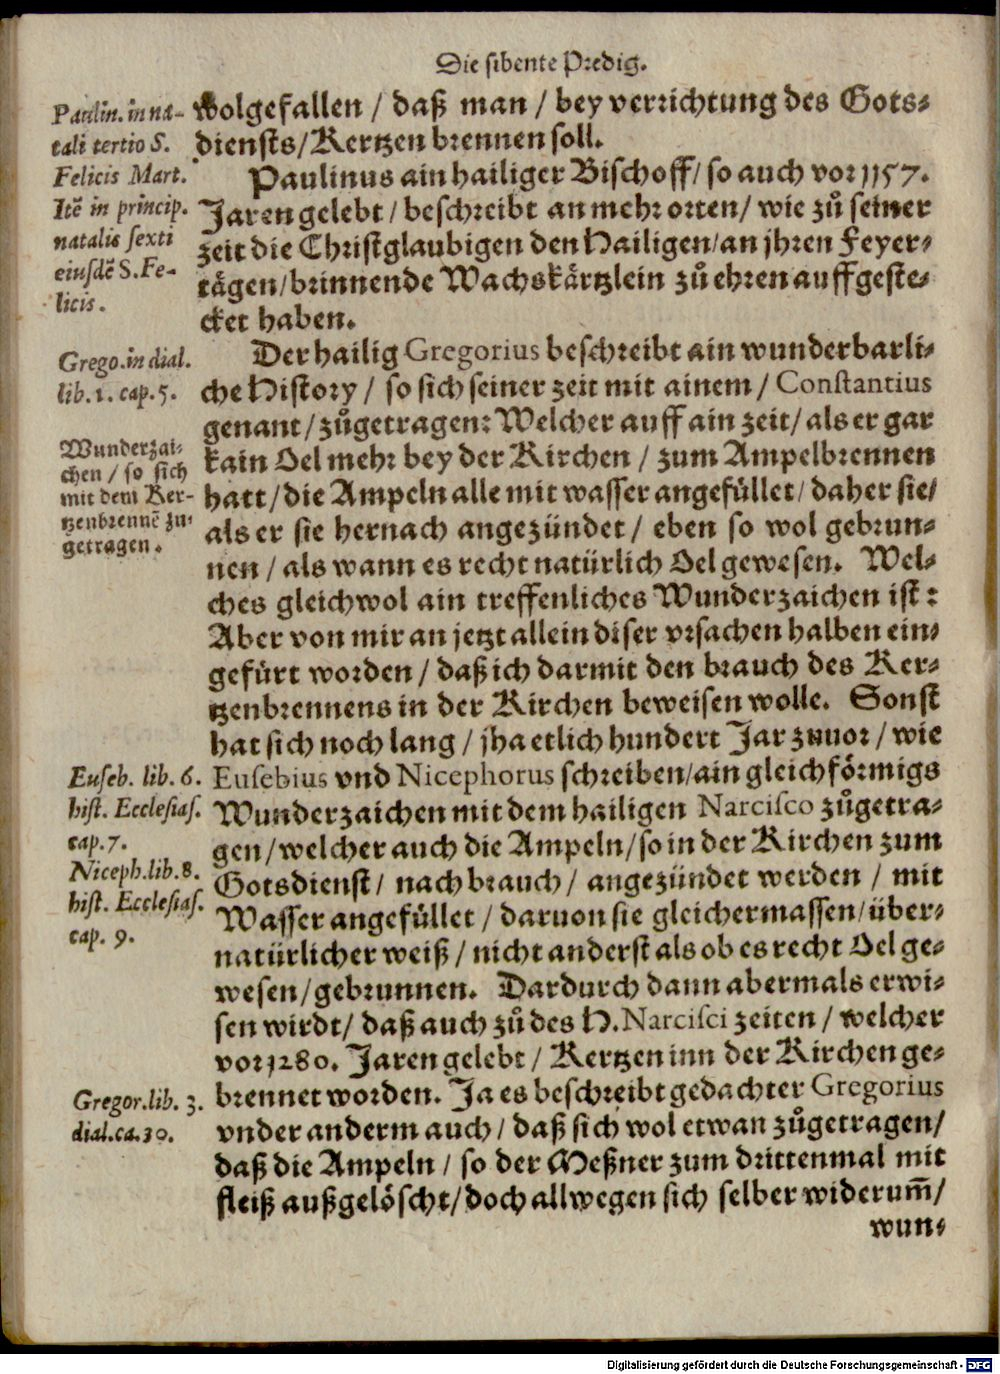 Die sibente Predig.
Paulin. in na-
tali tertio S.
Felicis Mart.
Itē in princip.
natalis sexti
eiusdē S. Fe-
licis.
wolgefallen / daß man / bey verrichtung des Gots-
diensts/ Kertzen brennen soll.
Paulinus ain hailiger Bischoff/ so auch vor 1157.
Jaren gelebt / beschreibt an mehr orten/ wie zů seiner
zeit die Christglaubigen den Hailigen/an jhren Feyer-
tägen/brinnende Wachskärtzlein zů ehren auffgeste-
cket haben.
Grego. in dial.
lib. 1. cap. 5.
Wunderzai-
chen / so sich
mit dem Ker-
tzenbrennē zu-
getragen.
Der hailig Gregorius beschreibt ain wunderbarli-
che History / so sich seiner zeit mit ainem / Constantius
genant / zůgetragen: Welcher auff ain zeit/ als er gar
kain Oel mehr bey der Kirchen / zum Ampelbrennen
hatt / die Ampeln alle mit wasser angefüllet/ daher sie/
als er sie hernach angezündet / eben so wol gebrun-
nen / als wann es recht natürlich Oel gewesen. Wel-
ches gleichwol ain treffenliches Wunderzaichen ist:
Aber von mir an jetzt allein diser vrsachen halben ein-
gefürt worden / daß ich darmit den brauch des Ker-
tzenbrennens in der Kirchen beweisen wolle. Sonst
hat sich noch lang / jha etlich hundert Jar zuuor / wie
Euseb. lib. 6.
hist. Ecclesias.
cap. 7.
Niceph. lib. 8.
hist. Ecclesias.
cap. 9.
Eusebius vnd Nicephorus schreiben/ain gleichförmigs
Wunderzaichen mit dem hailigen Narcisco zůgetra-
gen / welcher auch die Ampeln/ so in der Kirchen zum
Gotsdienst/ nach brauch / angezündet werden / mit
Wasser angefüllet / daruon sie gleichermassen/ über-
natürlicher weiß / nicht anderst als ob es recht Oel ge-
wesen/gebrunnen. Dardurch dann abermals erwi-
sen wirdt/ daß auch zů des H. Narcisci zeiten / welcher
vor 1280. Jaren gelebt / Kertzen inn der Kirchen ge-
Gregor. lib. 3.
dial. ca. 30.
brennet worden. Ja es beschreibt gedachter Gregorius
vnder anderm auch / daß sich wol etwan zůgetragen/
daß die Ampeln / so der Meßner zum drittenmal mit
fleiß außgelöscht/ doch allwegen sich selber widerum̄/
wun-
Digitalisierung gefördert durch die Deutsche Forschungsgemeinschaft - DFG